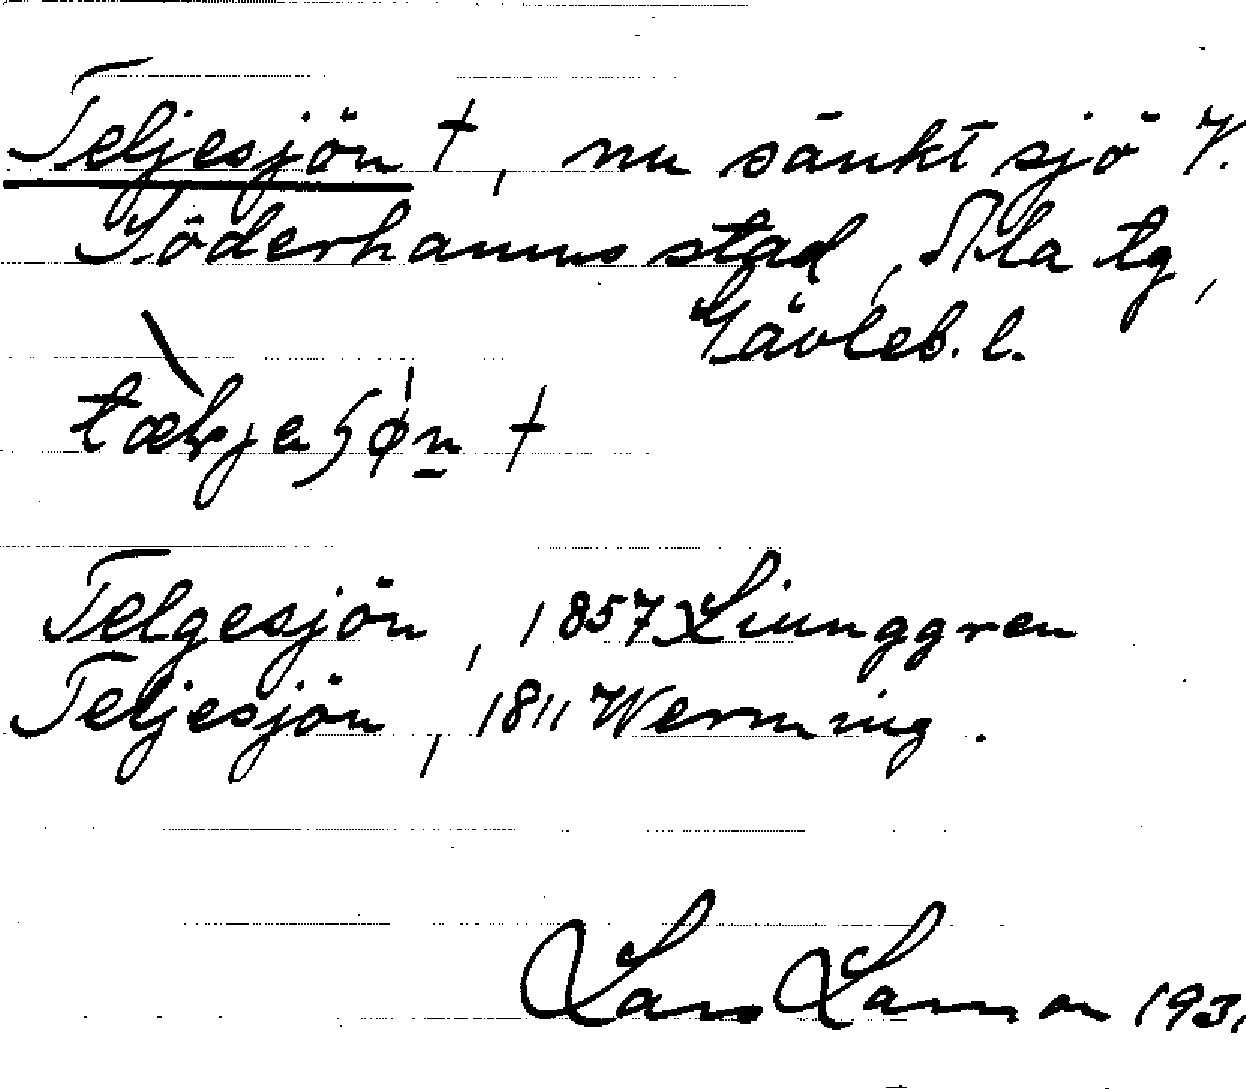 Teljesjön †, nu sänkt sjö V.
Söderhamns stad, Ala tg,
Gävleb. l.
†
Telgesjön, 1857 Ljunggren
Teljesjön, 1811 Wermning.
Lars Larsson 193